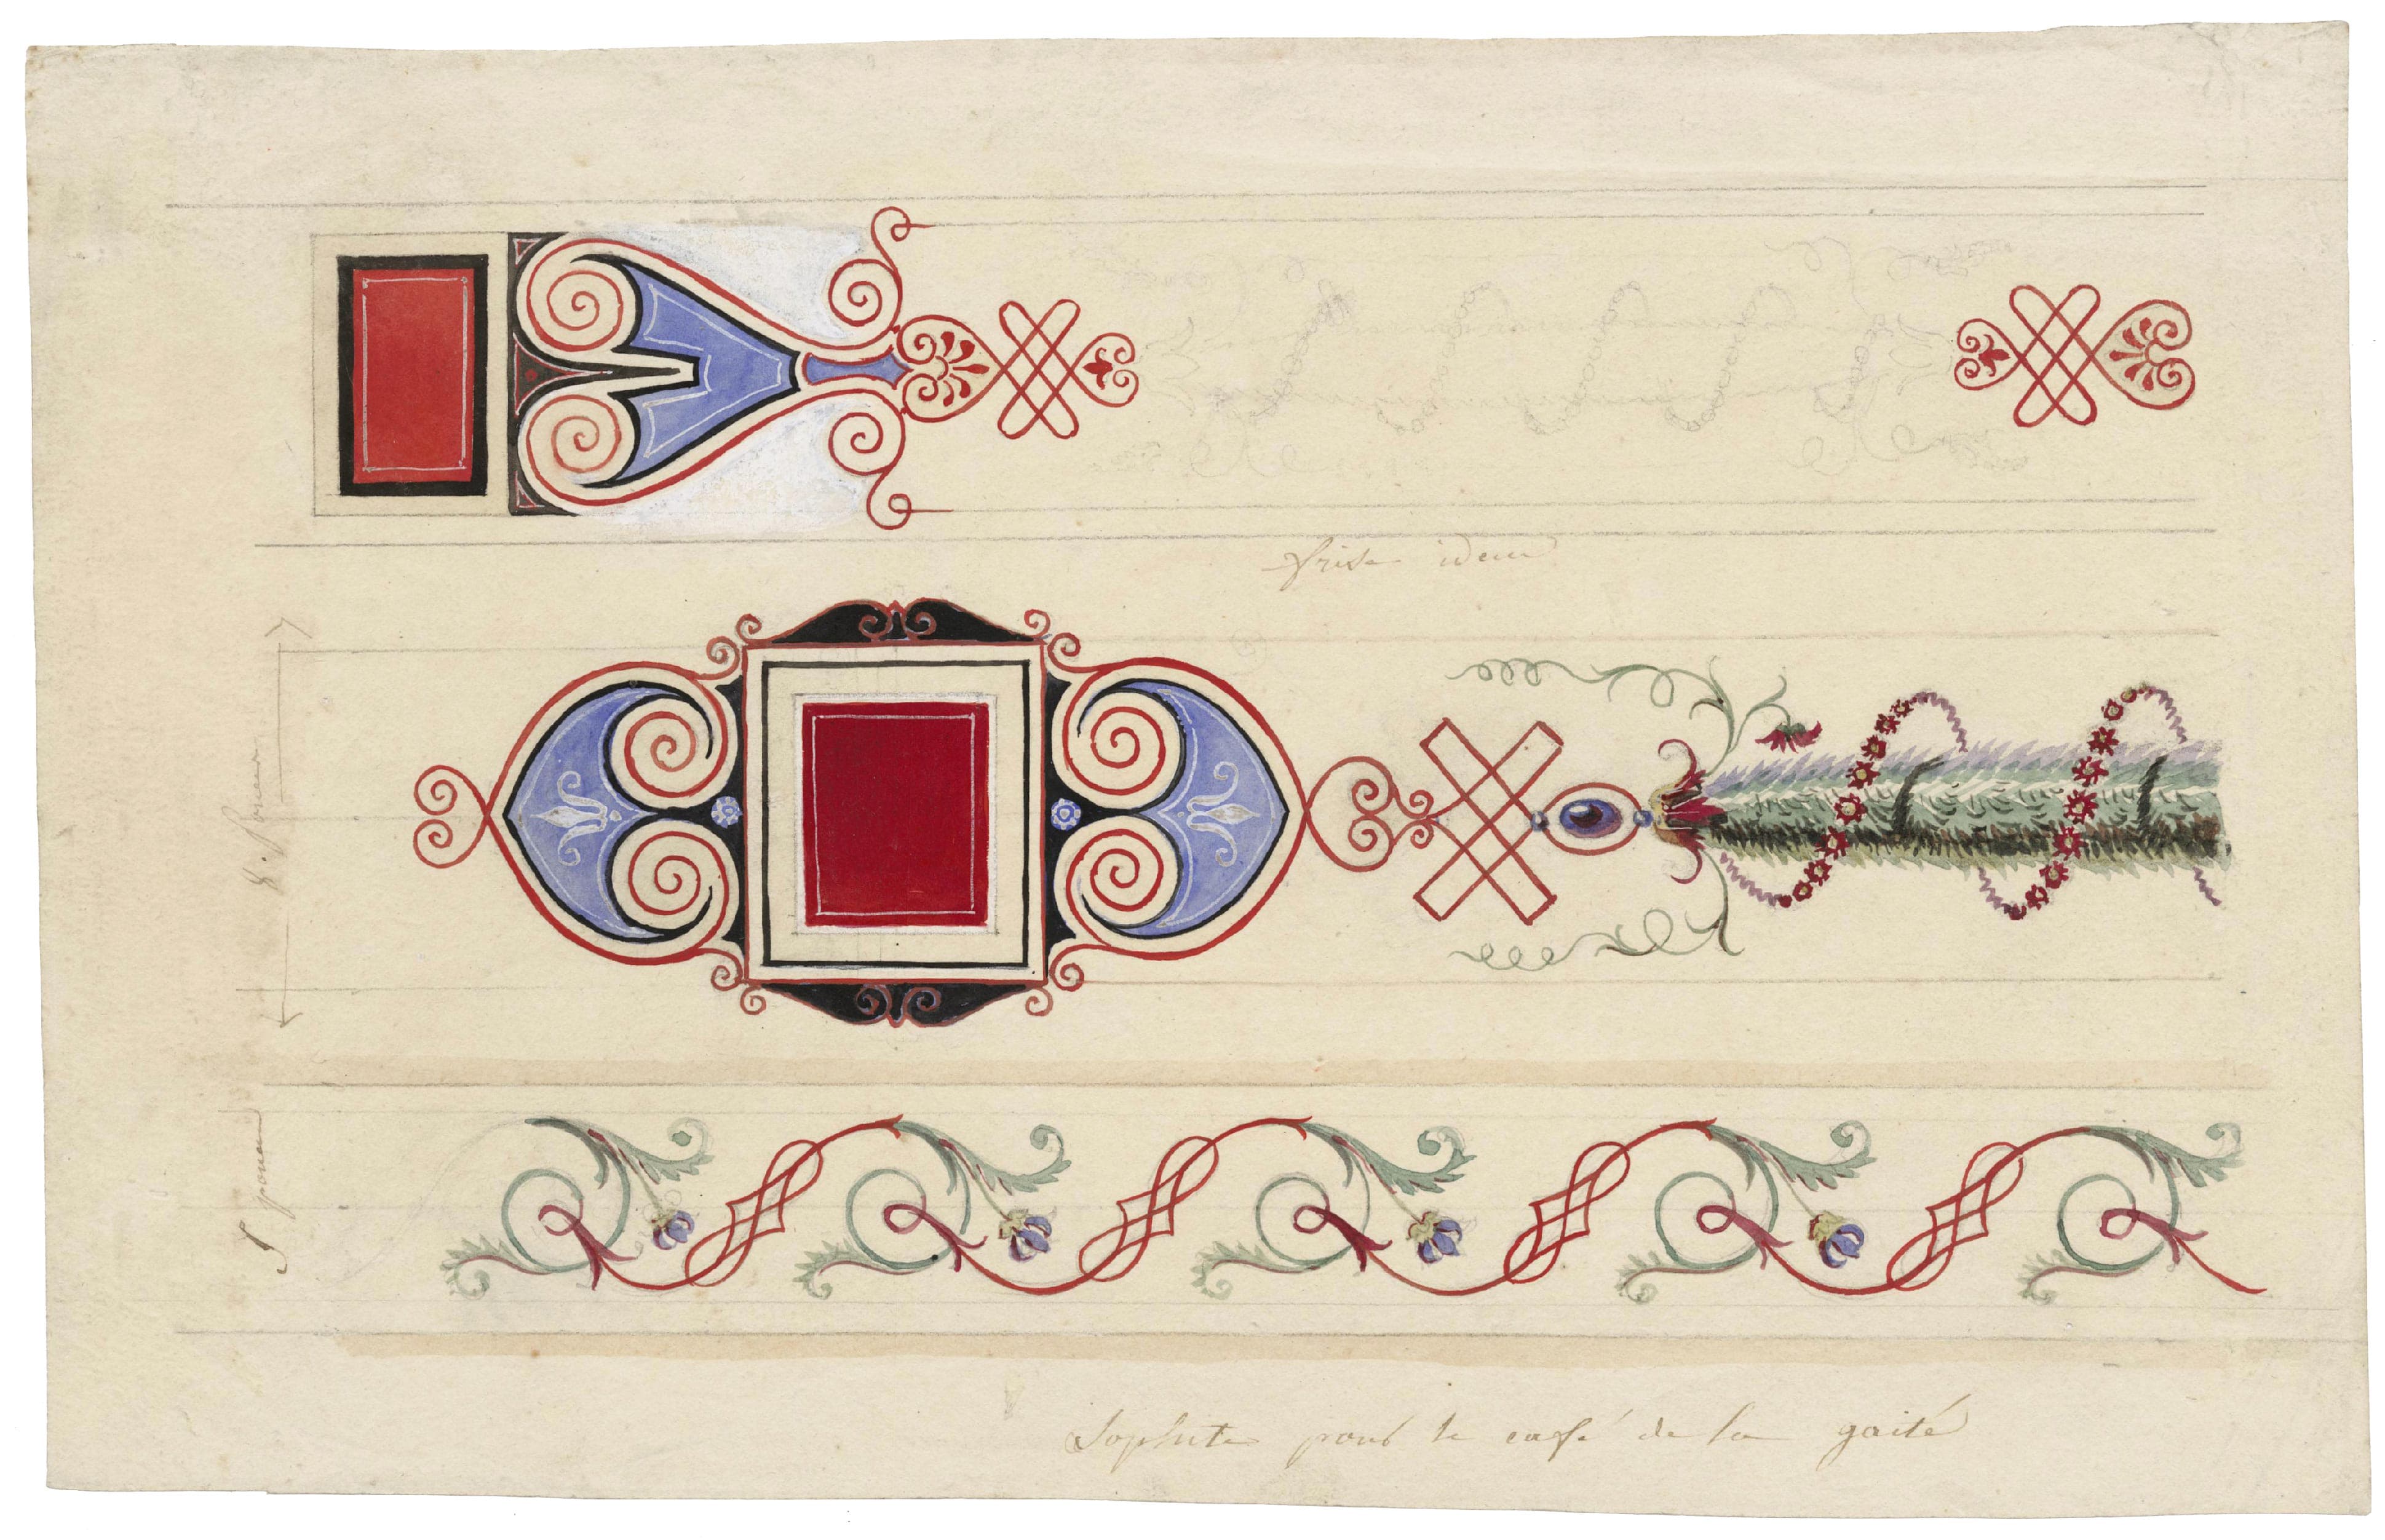 frise idem
8. Pouces
5 pouces
Sophite pour le café de la gaité